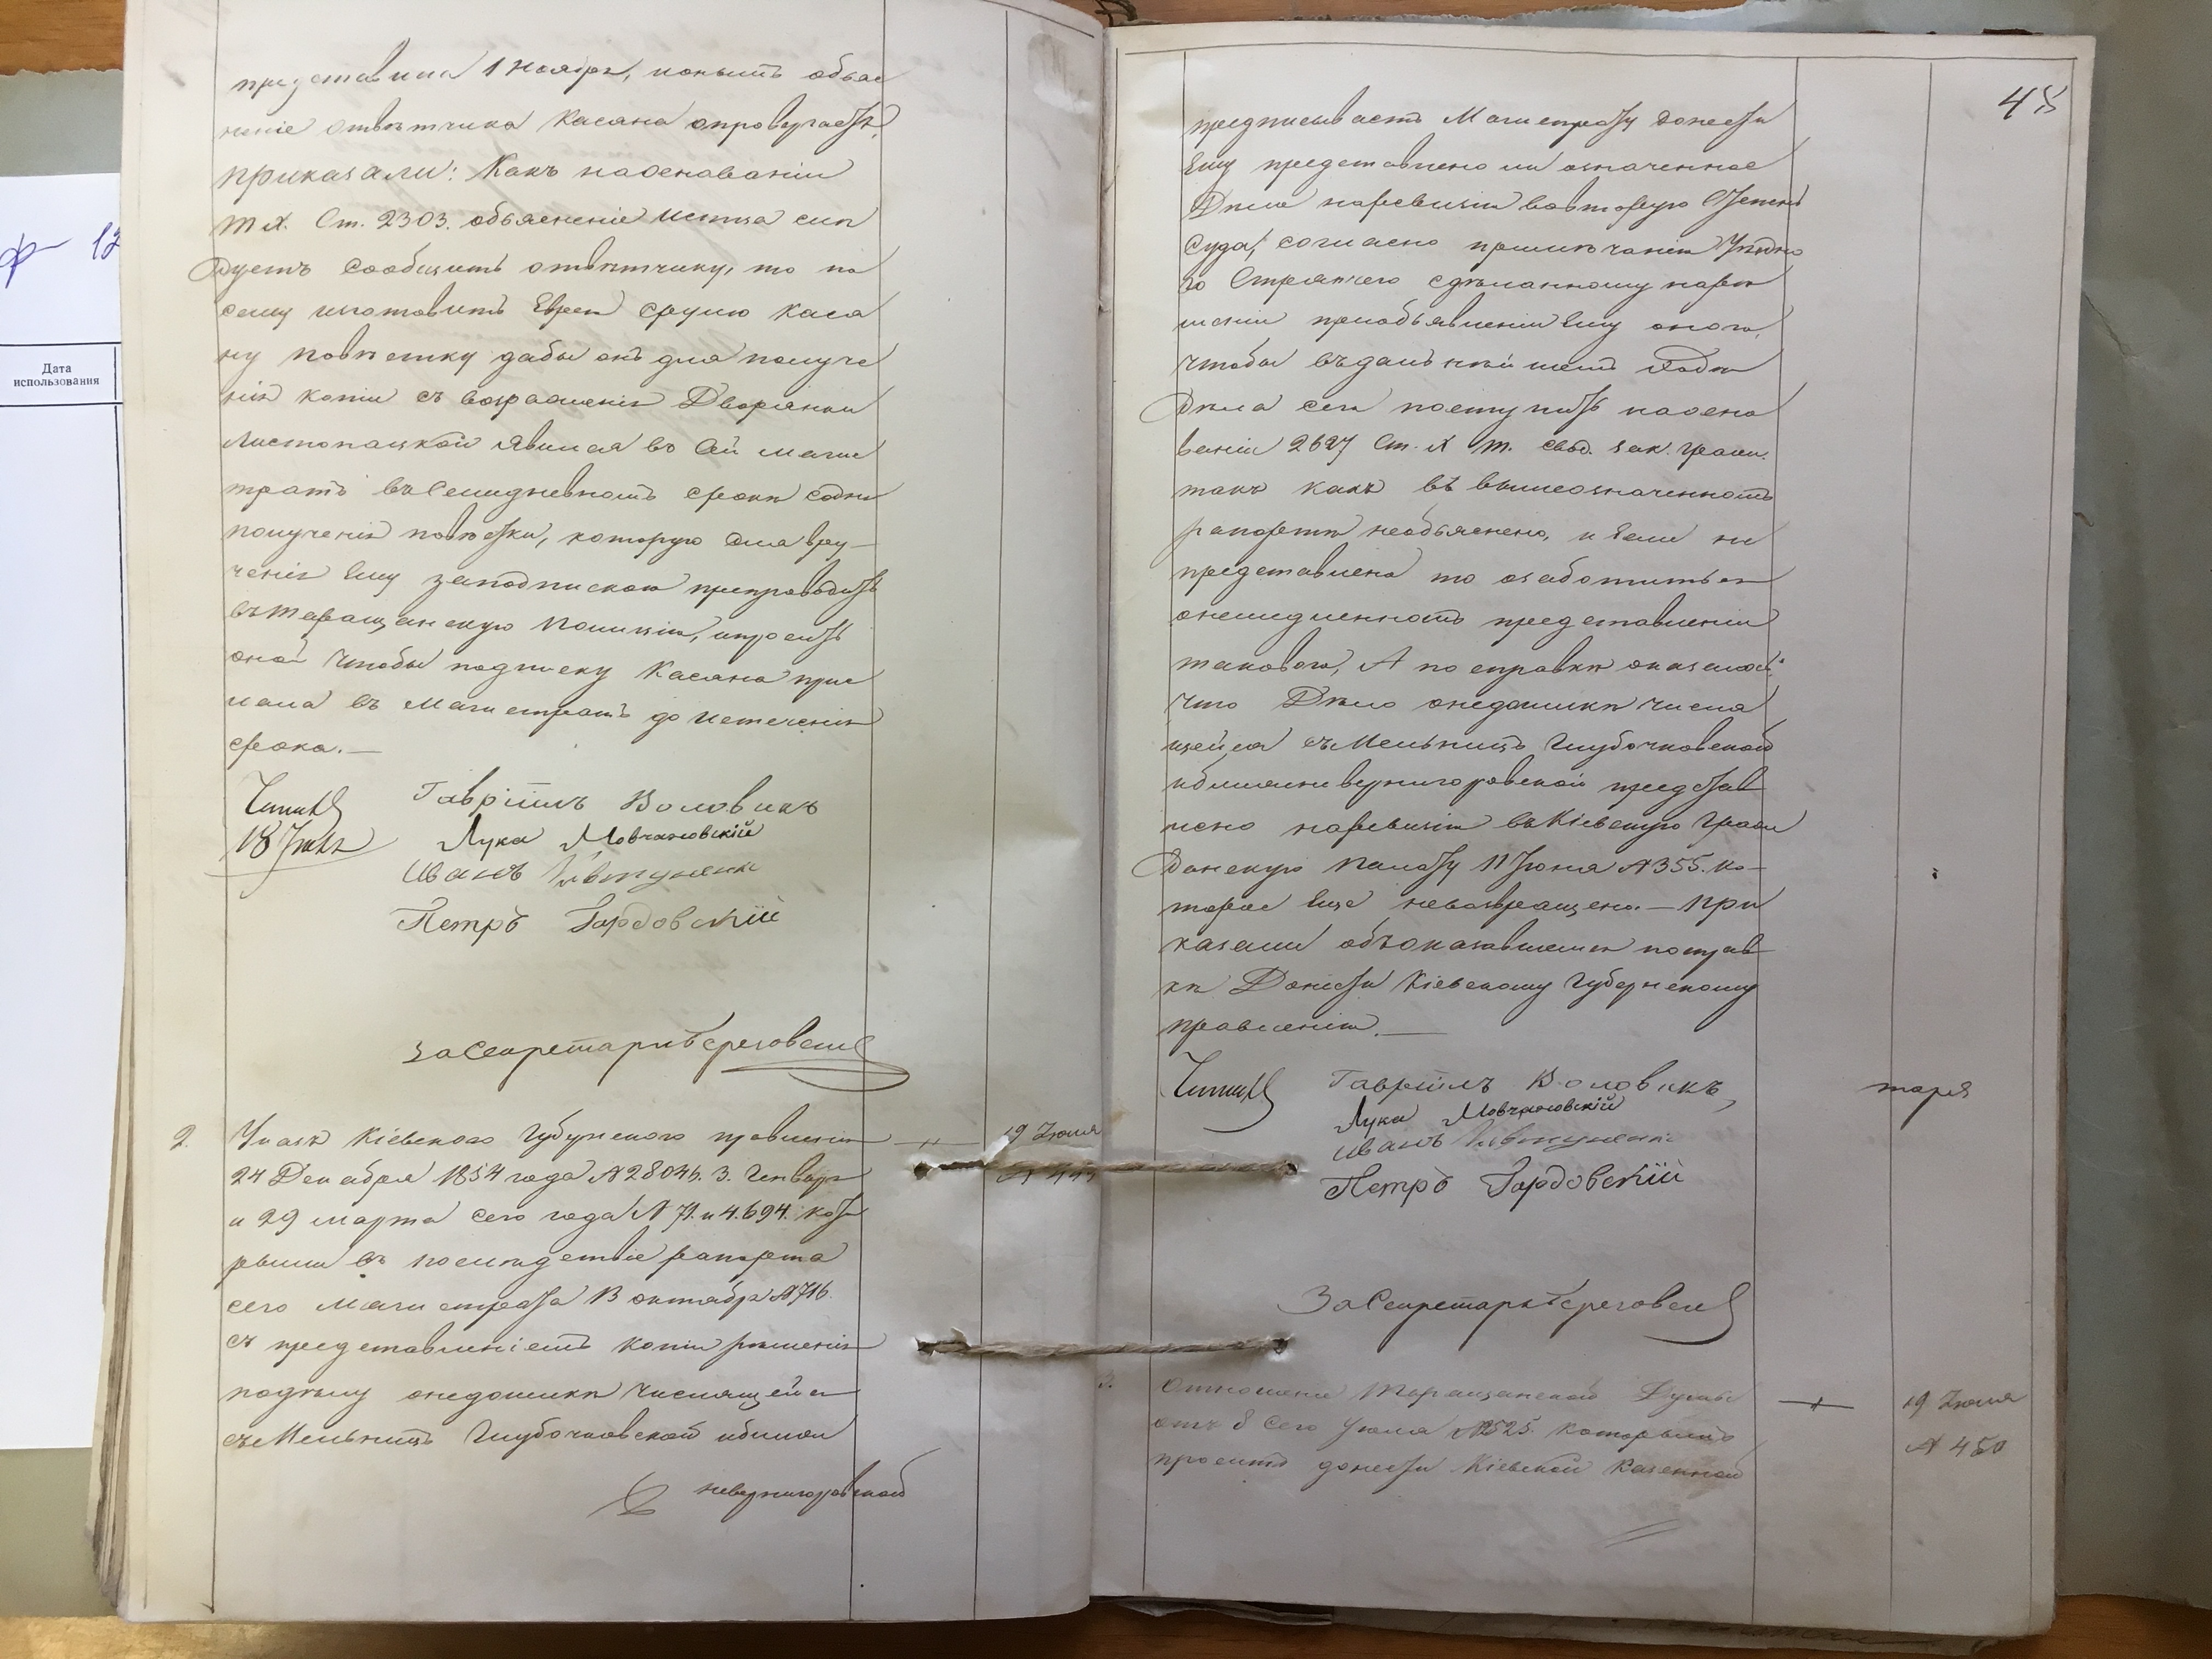 ф 12
Дата
использования
представила 1 Ноября, коимъ объяс
неніе отвѣтчика Касяна опровергаетъ,
приказали: Какъ наоснованіи
т X. Ст. 2303. объясненіе истца слѣ
дуетъ сообщить отвѣтчику, то по
сему изготовить Еврею Срулю Кася
ну повѣстку дабы онъ для получе
нія копіи съ возраженія Дворянки
Листопацкой явился во Сей маги
стратъ въ семидневномъ срокѣ содня
полученія повѣстки, которую для вру-
ченія Ему заподпискою препроводить
въ Таращанскую Полицію, ипросить
оной чтобы подписку Касяна прис
лала въ магистратъ до истеченія
срока.—
Читалъ
18 Іюля
Гавріилъ Воловикъ
Лука Мовчановскій
Иванъ
Петръ Гордовскій
За Секретаря Береговск
2.
Указъ Кіевского Губернского правленія
24 Декабря 1854 года № 28046. 3. Генваря
и 29 марта сего года № 71. и 4.694. кото
рыми въ послѣдствіе рапорта
сего магистрата 13 октября № 716.
съ представленіемъ копіи рѣшенія
подѣлу онедоимкѣ числящейся
съ Мельницъ Глубочковской иблизь
неверигоровской
19 Іюля
№ 449
45
предписываетъ Магистрату донести
Ему представлено ли означенное
Дѣло наревизію вовторую Степень
Суда, согласно примѣчанію Уѣздно
го Стряпчего сдѣланному нарѣ
шеніи приобъявленіи Ему оного,
чтобы въдальнѣйшемъ ходѣ
Дѣла сего поступить наосно
ваніи 2627 Ст. X т. свод. зак. гражд.
такъ какъ въ вышеозначенномъ
рапортѣ необъяснено, и Если не
представлено то озаботиться
онемедленномъ представленіи
такового, А по справкѣ оказалось:
что Дѣло онедоимкѣ числя
щейся съ Мельницъ Глубочковской
иблизь неверигоровской представ
лено наревизію въ Кіевскую Граж
данскую Палату 11 Іюня № 355. ко-
торое Еще невозвращено.— При
казали объоказавшемся посправ
кѣ Донести Кіевскому Губернскому
правленію.—
Читалъ
Гавріилъ Воловикъ
Лука Мовчановскій
Иванъ
Петръ Гордовскій
таря
За Секретаря Береговск
3.
Отношеніе Таращанской Думы
отъ 8 сего Іюля № 525. которымъ
проситъ донести Кіевской Казенной
19 Іюля
№ 450